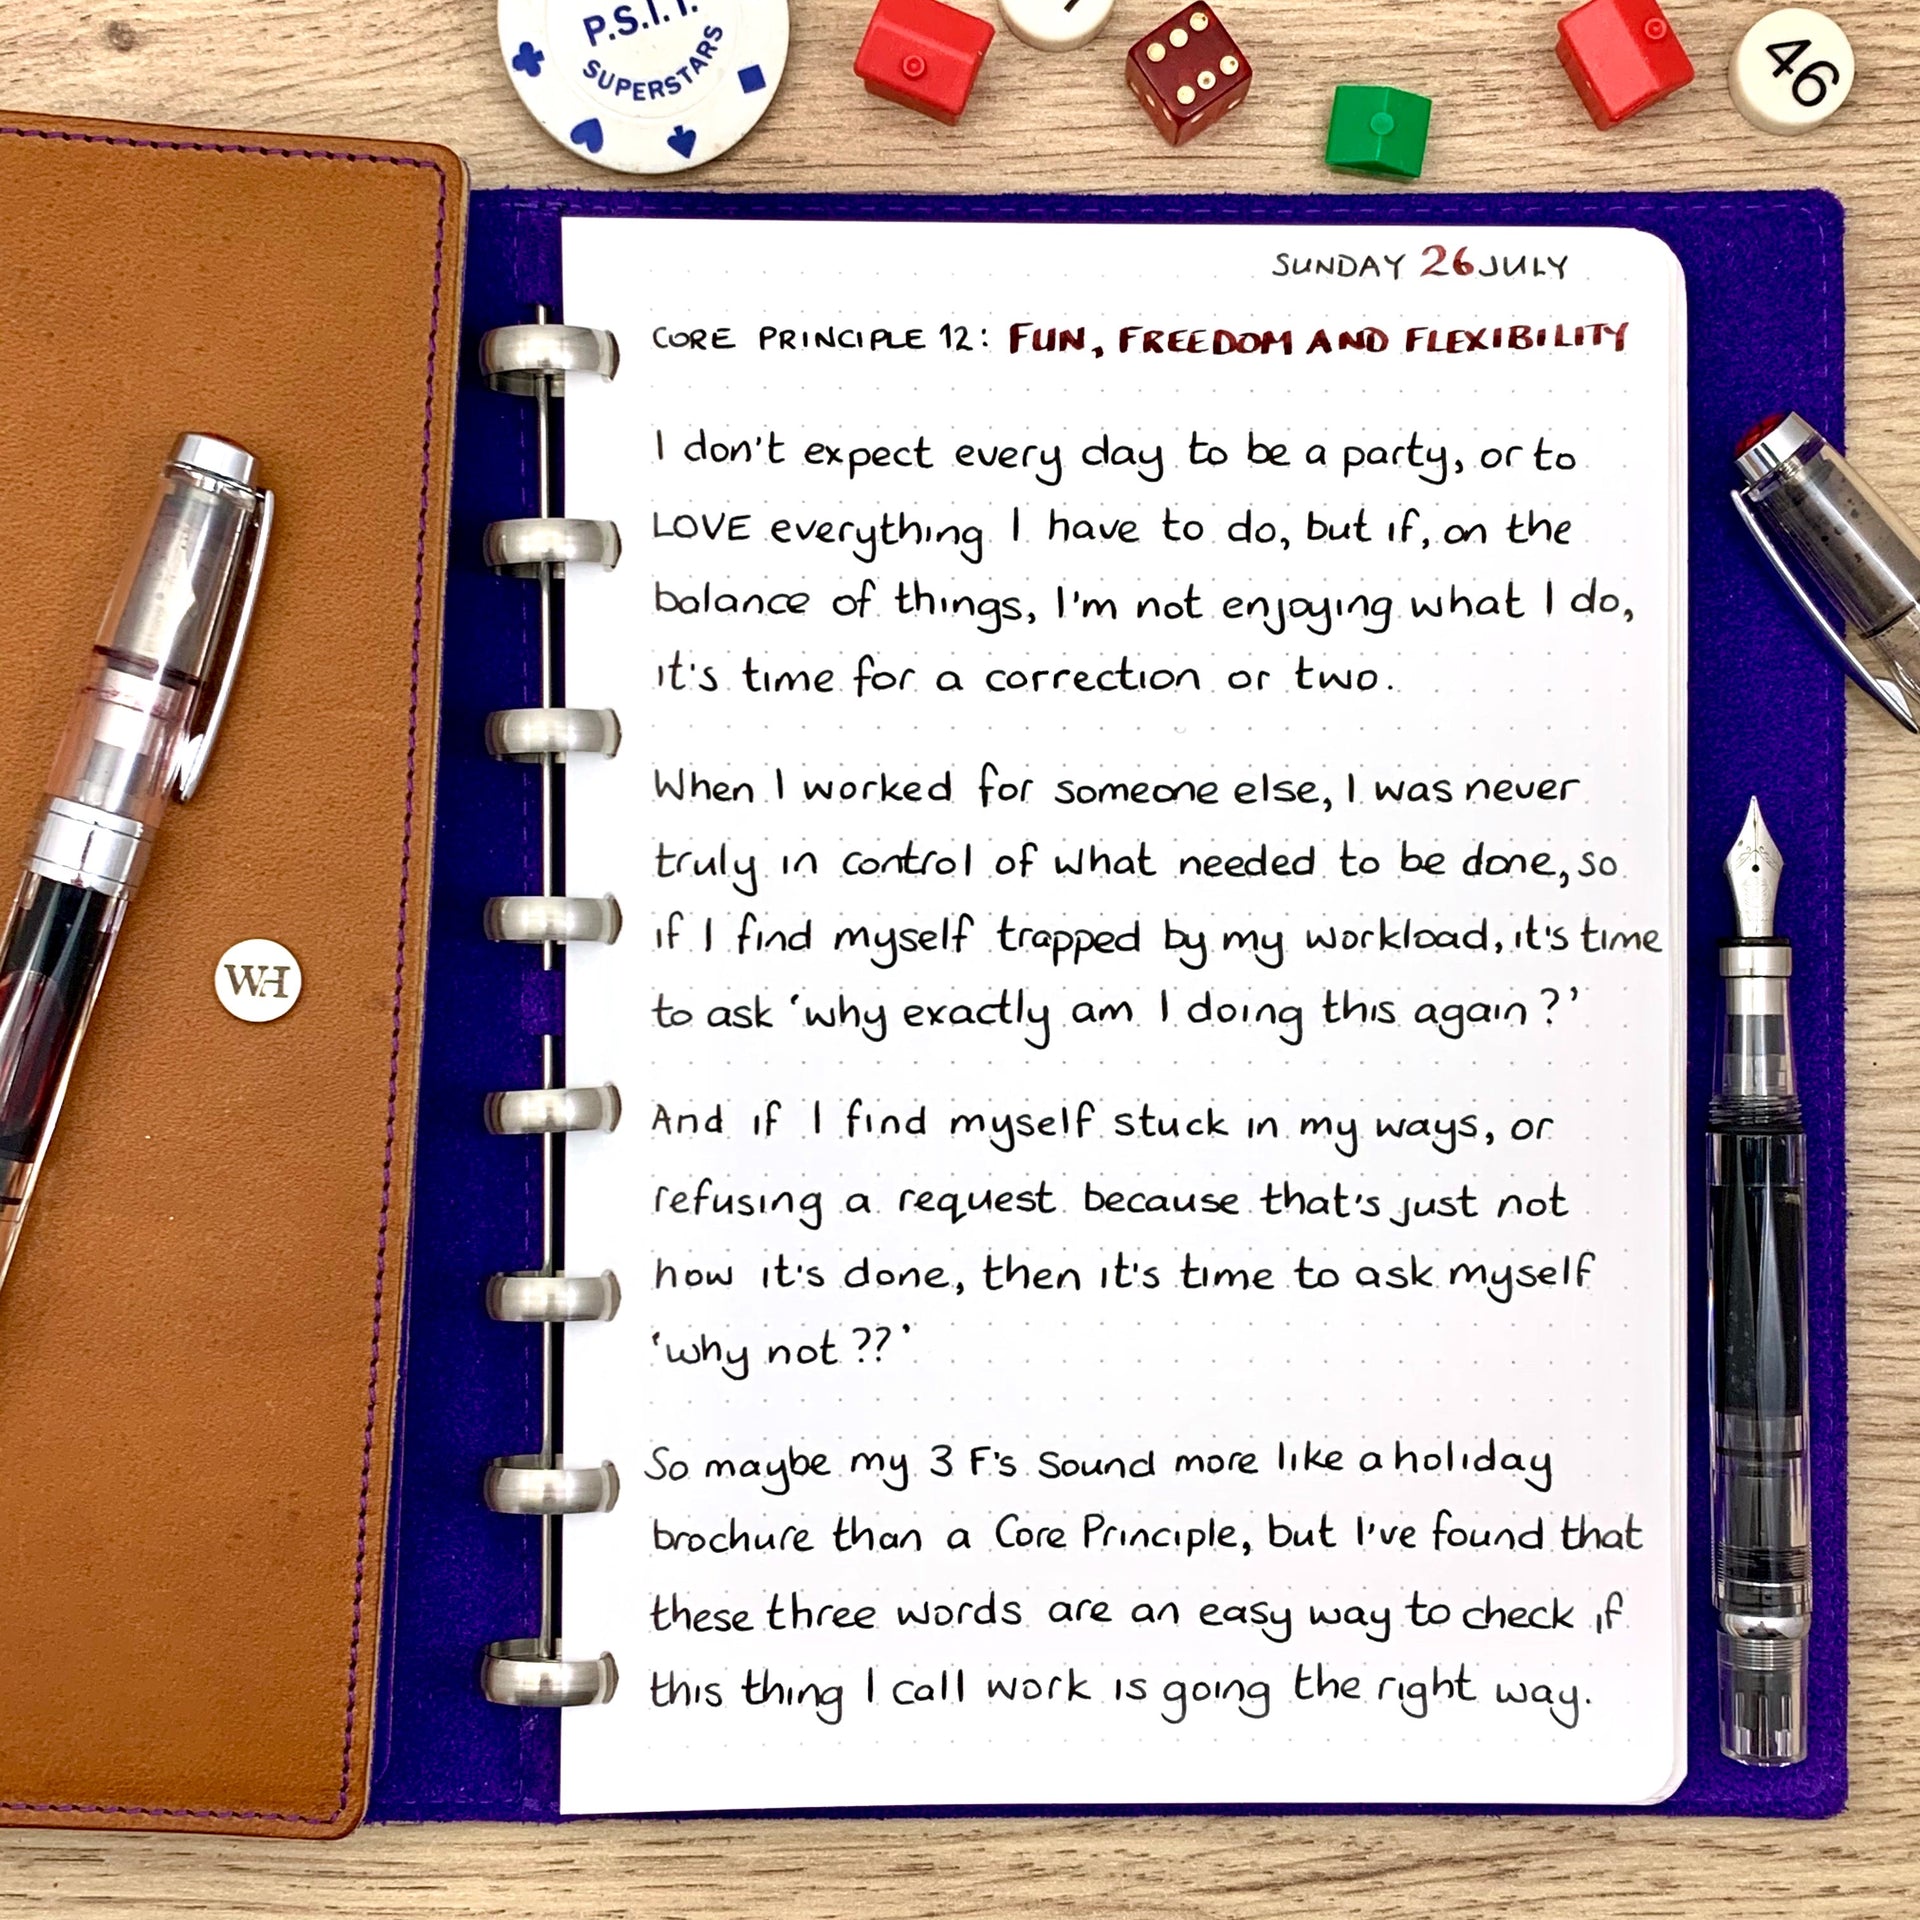 P.S.I.
SUPERSTARS
46
SUNDAY 26 JULY
CORE PRINCIPLE 12: FUN, FREEDOM AND FLEXIBILITY
I don't expect every day to be a party, or to
LOVE everything I have to do, but if, on the
balance of things, I'm not enjoying what I do,
it's time for a correction or two.
When I worked for someone else, I was never
truly in control of what needed to be done, so
if I find myself trapped by my workload, it's time
to ask 'why exactly am I doing this again?'
And if I find myself stuck in my ways, or
refusing a request because that's just not
how it's done, then it's time to ask myself
'why not??'
So maybe my 3 F's Sound more like a holiday
brochure than a Core Principle, but I've found that
these three words are an easy way to check if
this thing I call work is going the right way.
WH